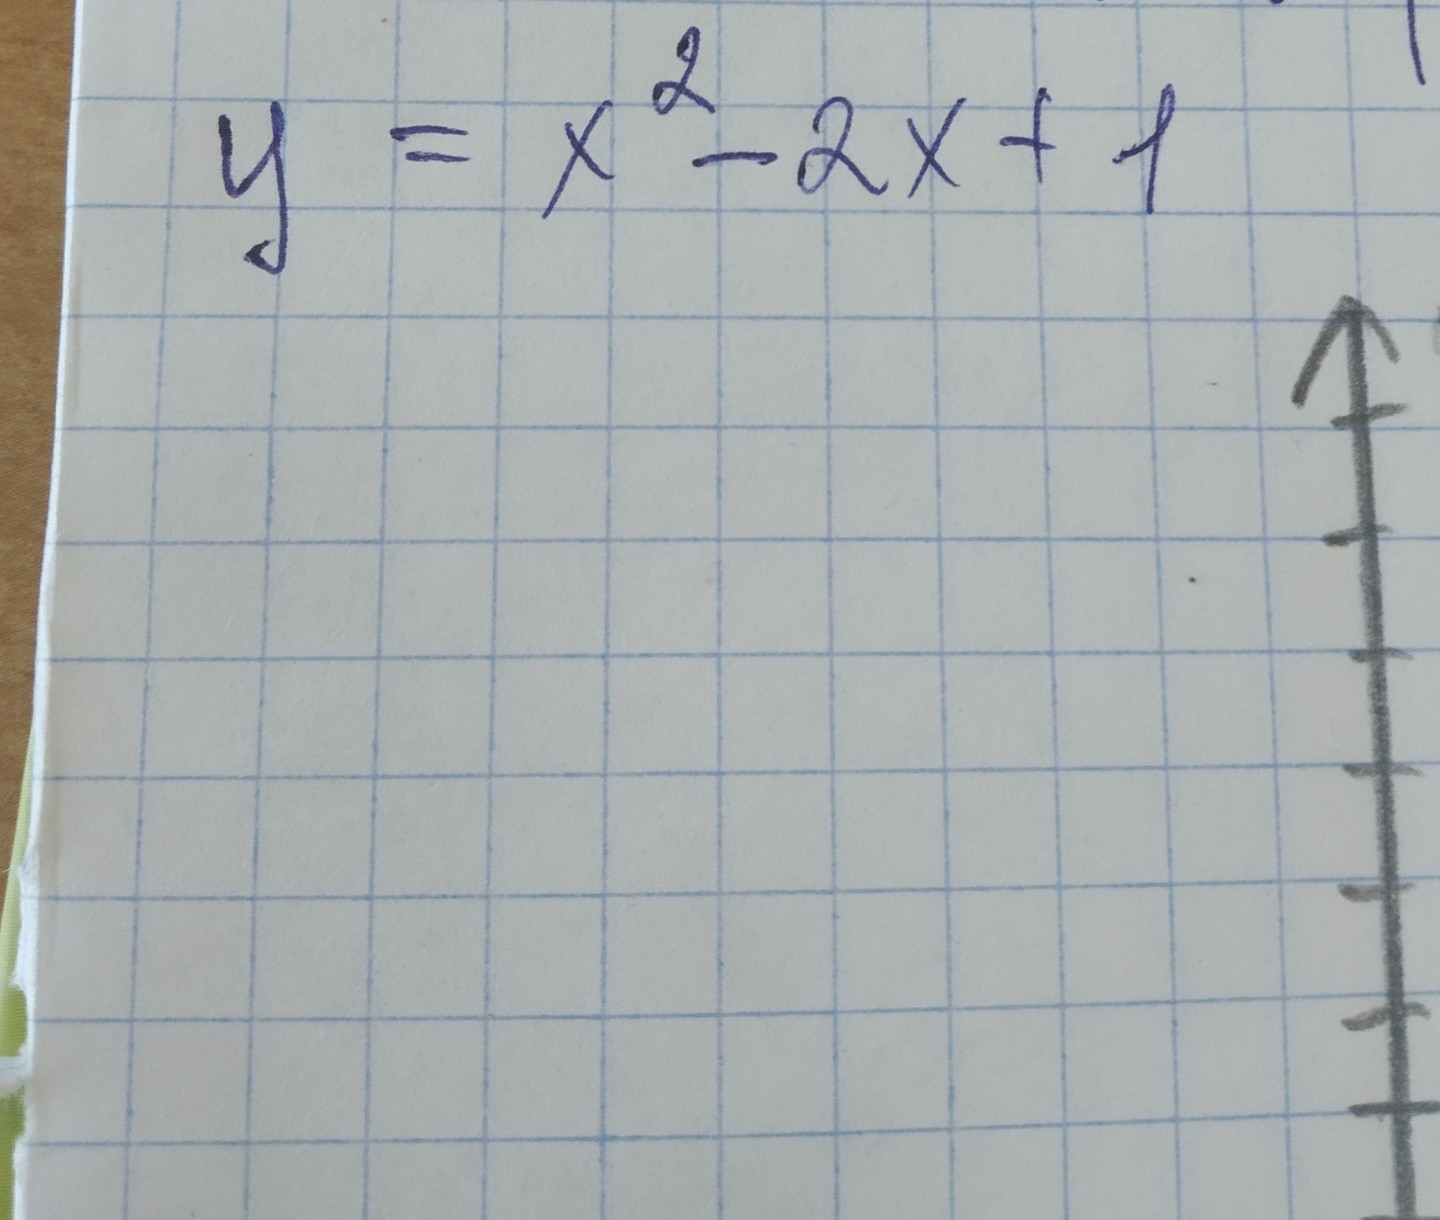 y = x² - 2x + 1